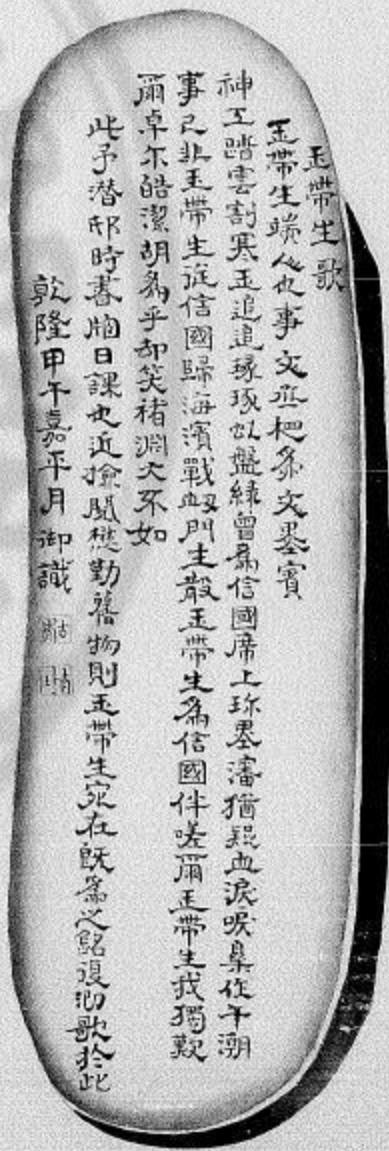 玉帶生歌
玉帶生端人也事文丞相為文墨賓
神工踏雲割寒玉追追琢琢以盤綠曾為信國席上珍墨瀋猶疑血淚午潮
事已非玉帶生從信國歸海濱戰門生散玉帶生為信國伴嗟爾玉帶生我獨歎
爾卓尔皓潔胡為乎却笑褚淵大不如
此予潛邸時書牕日課也近撿閱懋勤舊物則玉帶生宛在既為之銘復泐歌於此
乾隆甲午嘉平月御識